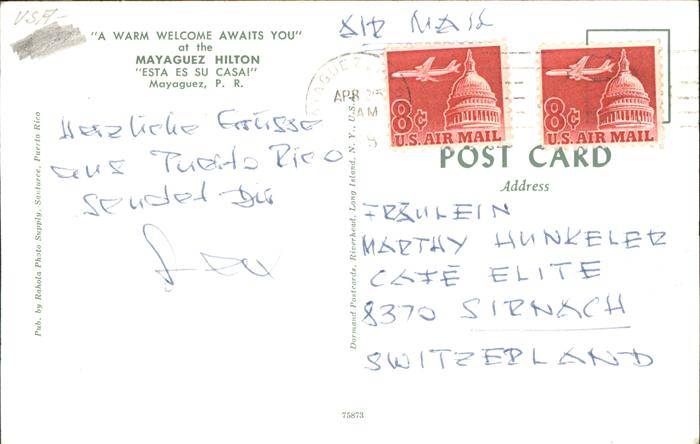 USA-
"A WARM WELCOME AWAITS YOU"
at the
MAYAGUEZ HILTON
"ESTA ES SU CASA!"
Mayaguez, P. R.
AIR MAIL
MAYAGUEZ
APR 25
AM
8¢
U.S. AIR MAIL
8¢
U.S. AIR MAIL
POST CARD
Address
Herzliche Grüsse
aus Puerto Rico
sendet Dir
FRÄULEIN
MARTHY HUNKELER
CAFÉ ELITE
8370 SIRNACH
SWITZERLAND
Pub. by Rahola Photo Supply, Santurce, Puerto Rico
Dormand Postcards, Riverhead, Long Island, N. Y., U.S.A.
75873